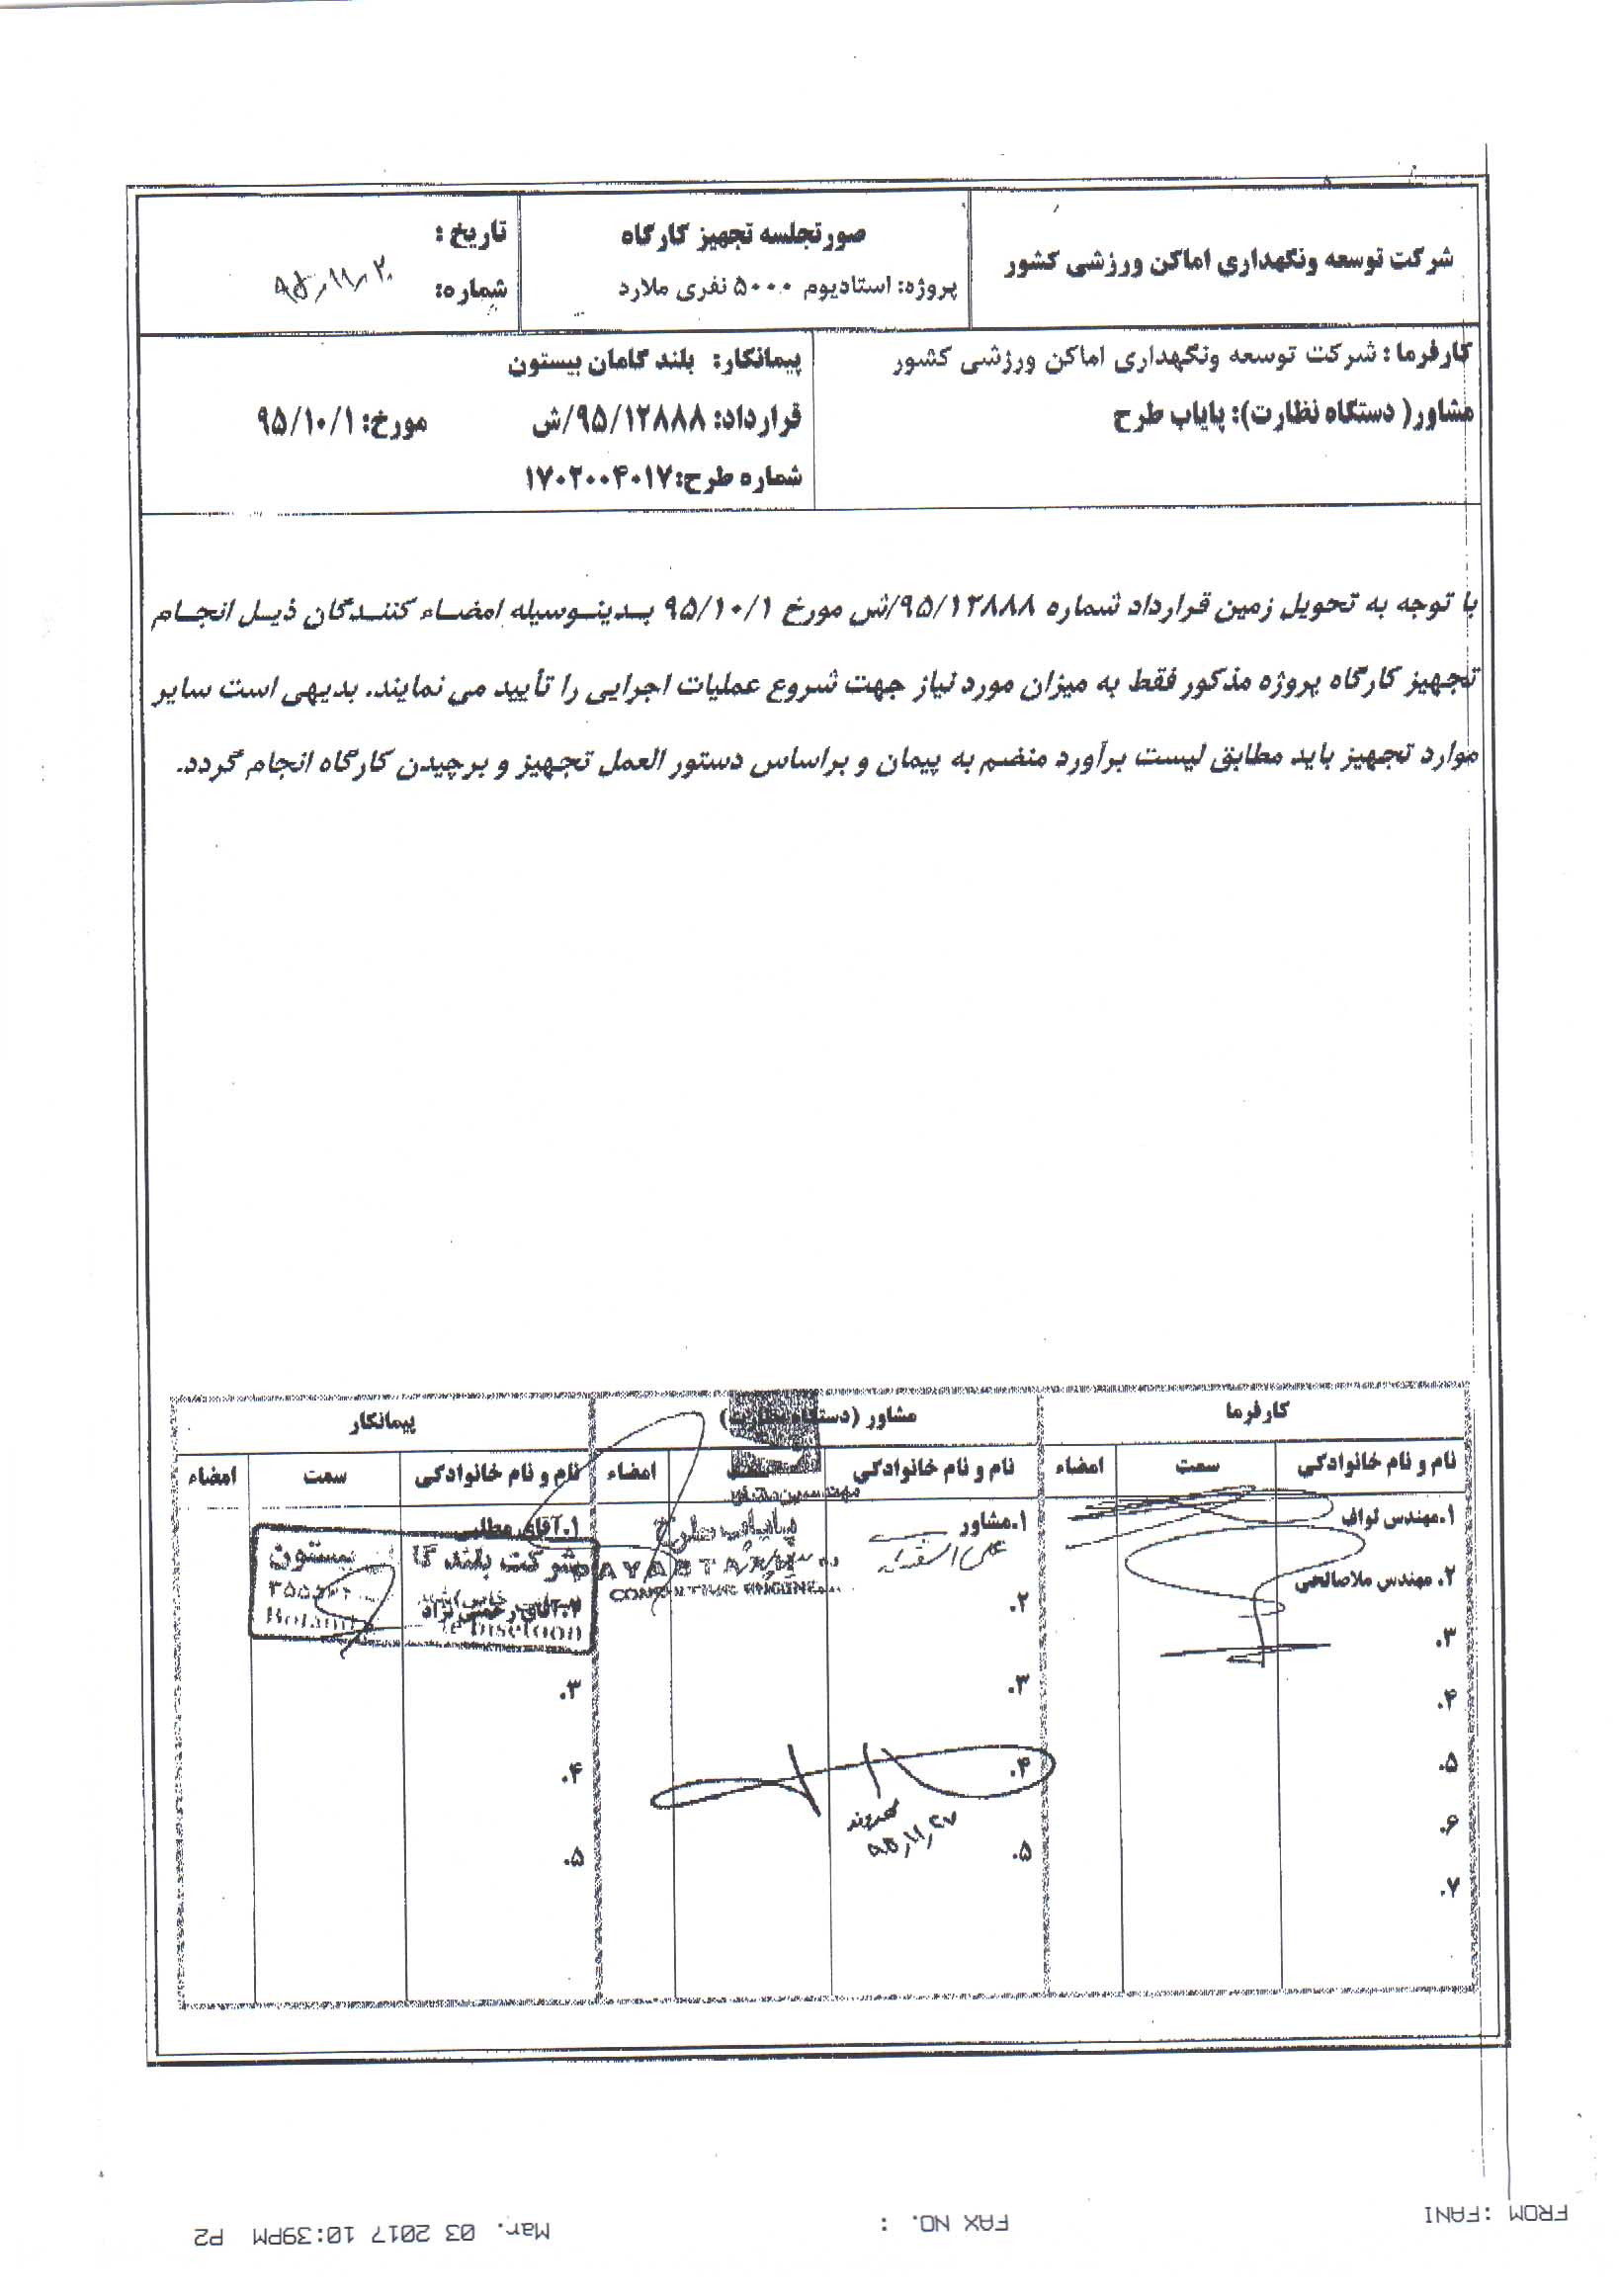 شرکت توسعه ونگهداری اماکن ورزشی کشور
صورتجلسه تجهیز کارگاه
پروژه: استادیوم ۵۰۰۰ نفری ملارد
تاریخ :
۹۵,۱۱,۲۰
شماره:
کارفرما : شرکت توسعه ونگهداری اماکن ورزشی کشور
مشاور( دستگاه نظارت): پایاب طرح
پیمانکار: بلند گامان بیستون
قرارداد: ۹۵/۱۲۸۸۸/ش مورخ: ۹۵/۱۰/۱
شماره طرح:۱۷۰۲۰۰۴۰۱۷
با توجه به تحویل زمین قرارداد شماره ۹۵/۱۲۸۸۸/ش مورخ ۹۵/۱۰/۱ بدینوسیله امضاء کنندگان ذیل انجام
تجهیز کارگاه پروژه مذکور فقط به میزان مورد نیاز جهت شروع عملیات اجرایی را تأیید می نمایند. بدیهی است سایر
موارد تجهیز باید مطابق لیست برآورد منضم به پیمان و براساس دستور العمل تجهیز و برچیدن کارگاه انجام گردد.
کارفرما
مشاور (دستگاه نظارت)
پیمانکار
نام و نام خانوادگی سمت امضاء
نام و نام خانوادگی امضاء
نام و نام خانوادگی سمت امضاء
۱.مهندس نواف
۲. مهندس ملاصالحی
۳.
۴.
۵.
۶.
۷.
۱.مشاور
۲.
۳.
۴.
۵.
مهندسین مشاور
پایاب طرح
PAYABTARH
۹۵,۱۱,۲۷
۱.آقای مطلبی
۲.آقای رحمتی نژاد
۳.
۴.
۵.
شرکت بلند گا بیستون
Boland
e bisetoon
FROM :FANI FAX NO. : Mar. 03 2017 10:39PM P2